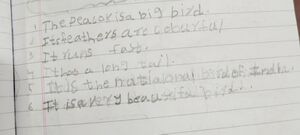 1 The peacok is a big bird.
2 Its feathers are colourful
3 It runs fast.
4 It has a long tail.
5 It is the national bird of India.
6 It is a very beautiful bird.